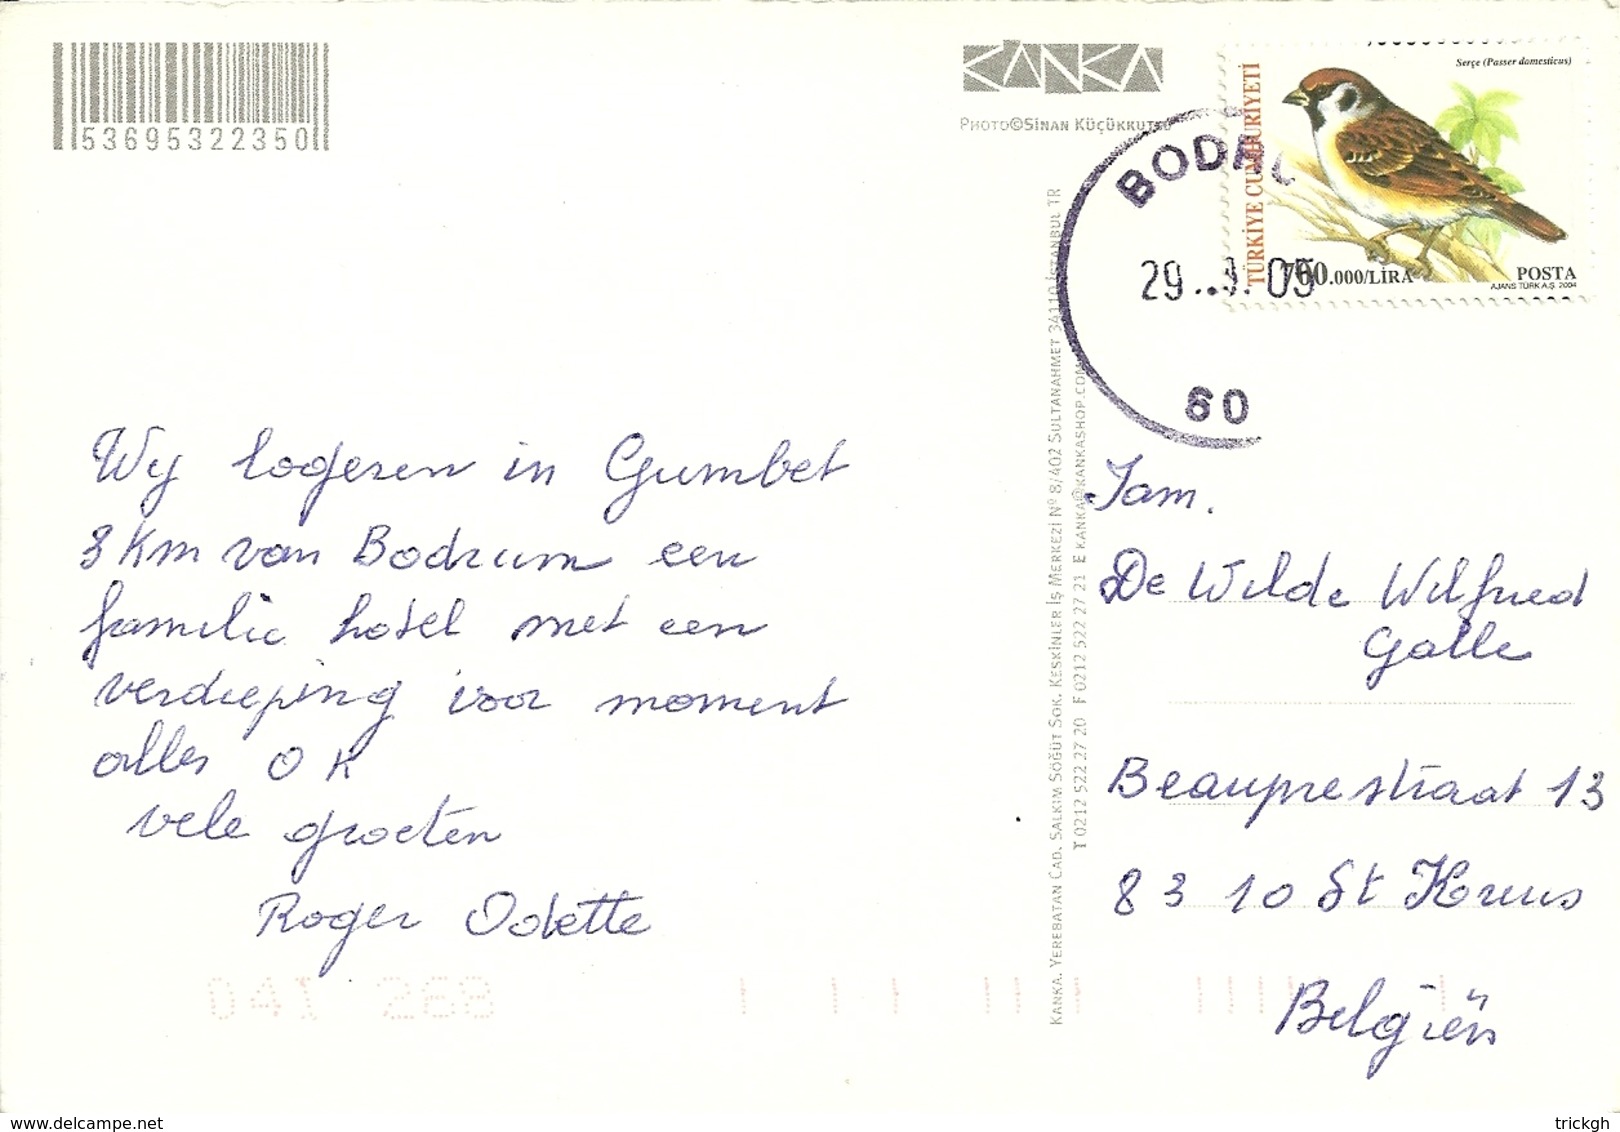 53695322350
KANKA
PHOTO©SİNAN KÜÇÜKKUTSU
Serçe (Passer domesticus)
TÜRKİYE CUMHURİYETİ
700.000/LİRA
POSTA
AJANS TÜRK A.Ş. 2004
BODRU
29. . 05
60
KANKA, YEREBATAN CAD. SALKIM SÖĞÜT SOK. KESKİNLER İŞ MERKEZİ Nº 8/402 SULTANAHMET 34110 İSTANBUL TR
T 0212 522 27 20 F 0212 522 27 21 E KANKA@KANKASHOP.COM
Wij logeren in Gumbet
3 km van Bodrum een
familie hotel met een
verdieping voor moment
alles OK
vele groeten
Roger Odette
Fam.
De Wilde Wilfried
Galle
Beauprestraat 13
8310 St Kruis
Belgiën
04I 268
trickgh / delcampe.net